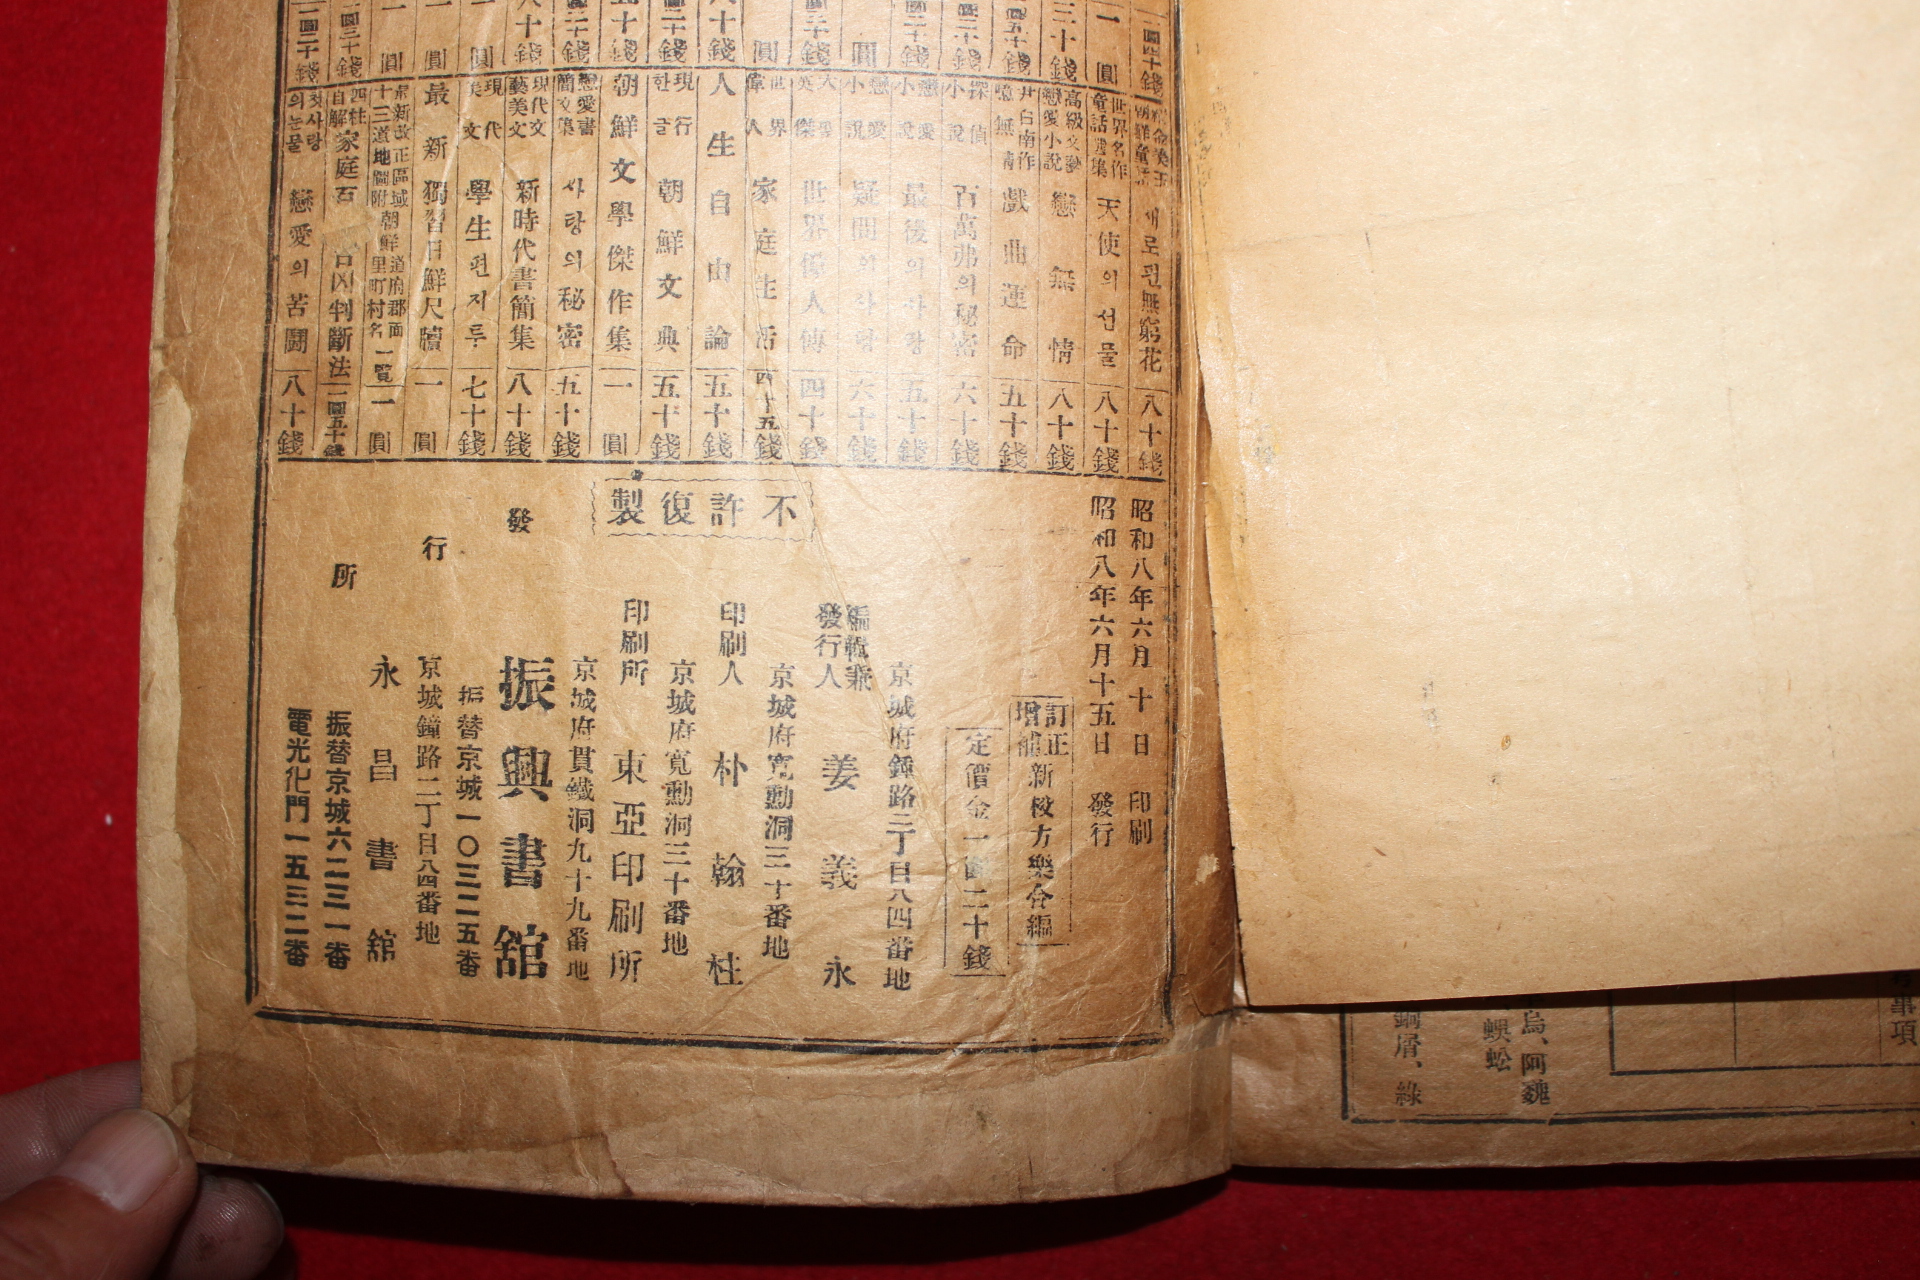 八十錢
새로핀無窮花
世界名作
童話選集
天使의선물
八十錢
高級文藝
戀愛小說
戀無情
八十錢
尹白南作
戲曲運命
五十錢
探偵
小說
百萬弗의秘密
六十錢
戀愛
小說
最後의사랑
五十錢
戀愛
小說
六十錢
世界偉人傳
四十錢
世界
偉人
家庭生活
四十五錢
人生自由論
五十錢
現行
한글
朝鮮文典
五十錢
朝鮮文學傑作集
一圓
戀愛書
簡文集
사랑의秘密
五十錢
現代文
藝美文
新時代書簡集
八十錢
現代
美文
學生편지투
七十錢
最新獨習日鮮尺牘
一圓
新改正區域朝鮮道府郡面
十三道地圖附里町村名一覽
一圓
四柱
自解
家庭百
吉凶判斷法
一圓五十錢
첫사랑
의눈물
戀愛의苦鬪
八十錢
昭和八年六月十日 印刷
昭和八年六月十五日 發行
訂正
增補
新校方藥合編
定價金一圓二十錢
不許復製
京城府鍾路二丁目八四番地
編輯兼
發行人 姜義永
京城府寬勳洞三十番地
印刷人 朴翰柱
京城府寬勳洞三十番地
印刷所 東亞印刷所
京城府貫鐵洞九十九番地
發行所
振興書舘
振替京城一〇三二五番
京城鐘路二丁目八四番地
永昌書舘
振替京城六二三一番
電光化門一五三二番
事項
烏、阿魏
蜈蚣
銅屑、綠